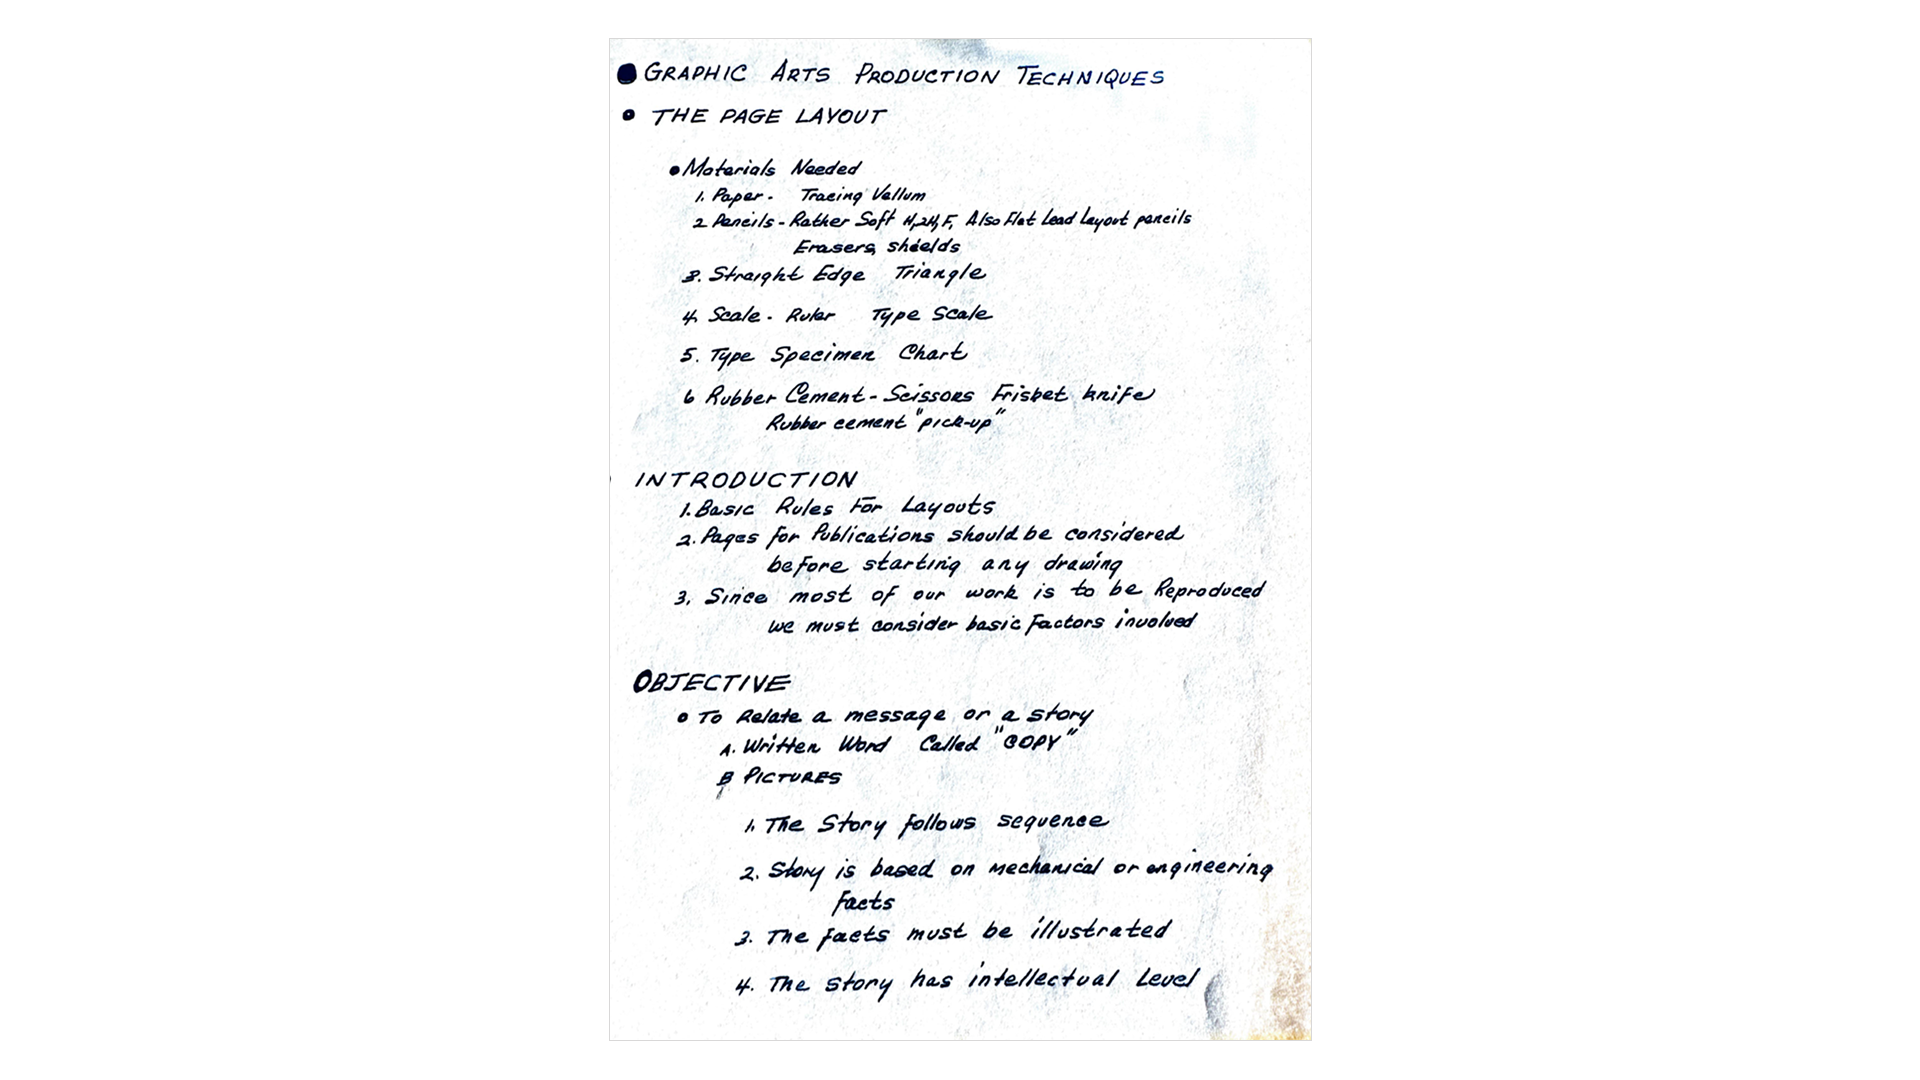 GRAPHIC ARTS PRODUCTION TECHNIQUES
THE PAGE LAYOUT
Materials Needed
1. Paper - Tracing Vellum
2 Pencils - Rather Soft H, 2H, F, Also Flat Lead Layout pencils
Erasers, shields
3. Straight Edge Triangle
4. Scale - Ruler Type Scale
5. Type Specimen Chart
6 Rubber Cement - Scissors Frisket knife
Rubber cement "pick-up"
INTRODUCTION
1. Basic Rules For Layouts
2. Pages for Publications should be considered
before starting any drawing
3. Since most of our work is to be Reproduced
we must consider basic factors involved
OBJECTIVE
To Relate a message or a story
A. Written Word Called "COPY"
B PICTURES
1. The Story follows sequence
2. Story is based on mechanical or engineering
facts
3. The facts must be illustrated
4. The story has intellectual Level